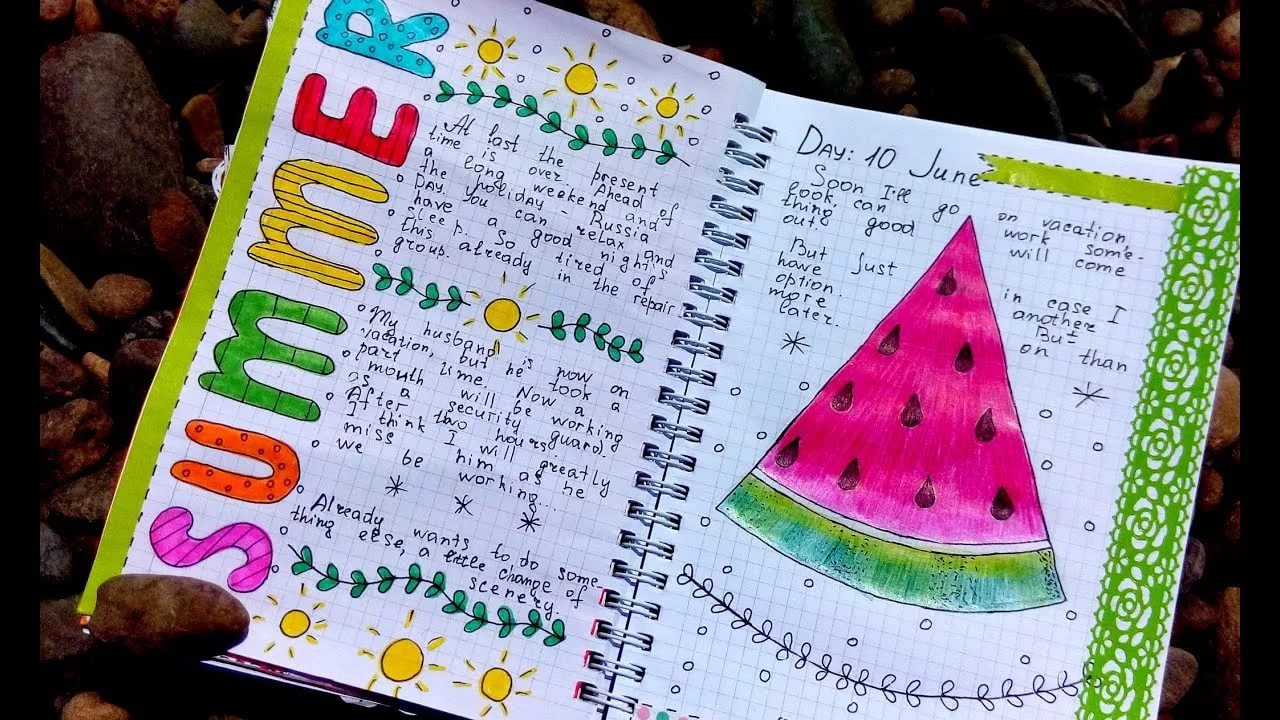 SUMMER
At last the present
time is over. Ahead of
a long weekend and
the holiday - Russia
Day. You can relax and
have a good night's
sleep. So tired of
this already in the repair
group.
My husband is now on
vacation, but he took a
part time. Now a
mouth will be working
as a security guard.
After two hours)
I think I will greatly
miss him as he
we be working...
Already wants to do some
thing else, a little change of
scenery.
Day: 10 June
Soon I'll go on vacation,
look can work some-
thing good will come
out.
But just in case I
have another
option. But
more on than
later.